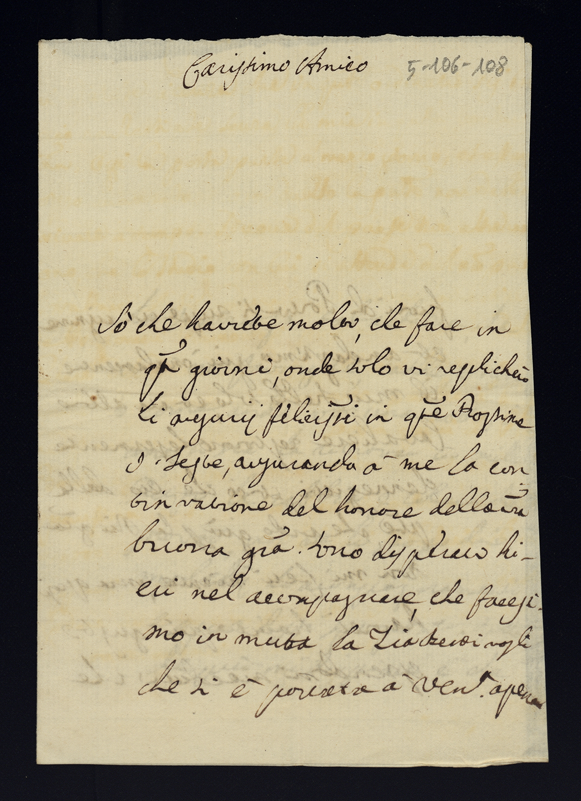 Carissimo Amico 5-106-108
Sò che havrete molto, che fare in
q.ti giorni, onde solo vi replicherò
li augurij feliciss.i in q.te Prossime
S. Feste, augurando à me la con
tinuatione del honore della vra
buona gra. Sono disperato hi-
eri nel accompagnare, che facessi-
mo in muta la Zia
che si è portata à Ven.a apena